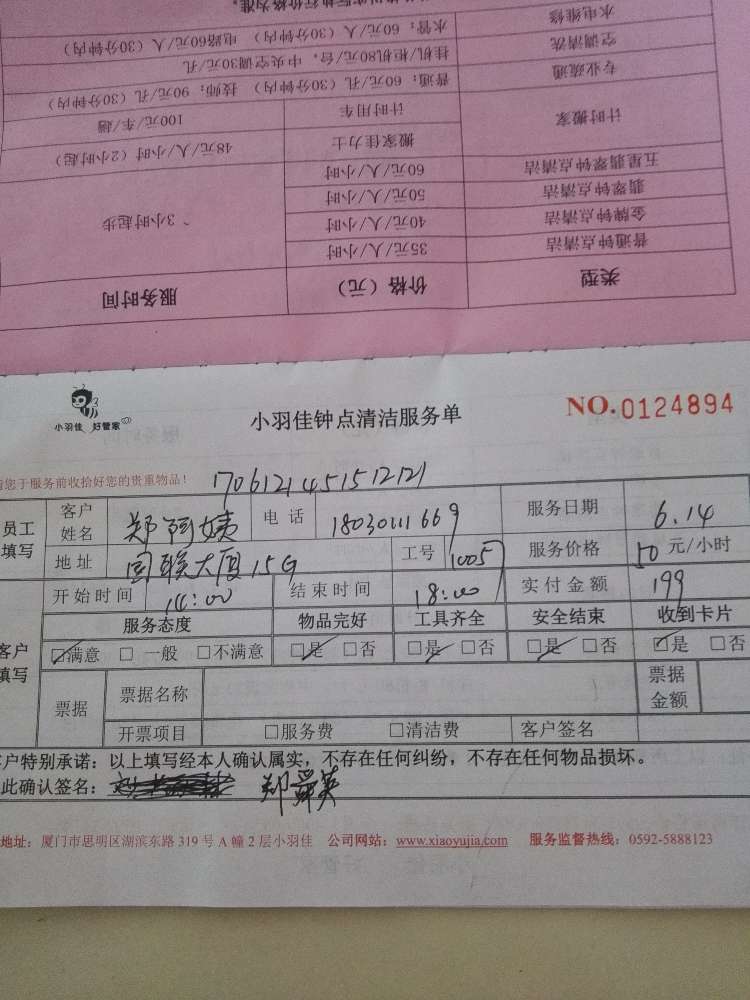 类型 价格（元） 服务时间
普通钟点清洁 35元/人/小时
金牌钟点清洁 40元/人/小时 3小时起步
翡翠钟点清洁 50元/人/小时
五星翡翠钟点清洁 60元/人/小时
计时搬家 搬家佳力士 48元/人/小时（2小时起）
计时用车 100元/车/趟
专业疏通 普通：60元/孔（30分钟内） 技师：90元/孔（30分钟内）
空调清洗 挂机/柜机80元/台，中央空调30元/孔
水电维修 水管：60元/人（30分钟内） 电路60元/人（30分钟内）
小羽佳 好管家
小羽佳钟点清洁服务单
NO.0124894
您于服务前收拾好您的贵重物品！
1706121451512121
员工填写 客户姓名 郑阿姨 电话 18030111669 服务日期 6.14
地址 国联大厦15G 工号 1005 服务价格 50元/小时
开始时间 14:00 结束时间 18:00 实付金额 199
客户填写 服务态度 物品完好 工具齐全 安全结束 收到卡片
☑满意 □一般 □不满意 ☑是 □否 ☑是 □否 ☑是 □否 ☑是 □否
票据 票据名称 票据金额
开票项目 □服务费 □清洁费 客户签名
客户特别承诺：以上填写经本人确认属实，不存在任何纠纷，不存在任何物品损坏。
此确认签名： 郑
地址：厦门市思明区湖滨东路319号A幢2层小羽佳 公司网站：www.xiaoyujia.com 服务监督热线：0592-5888123